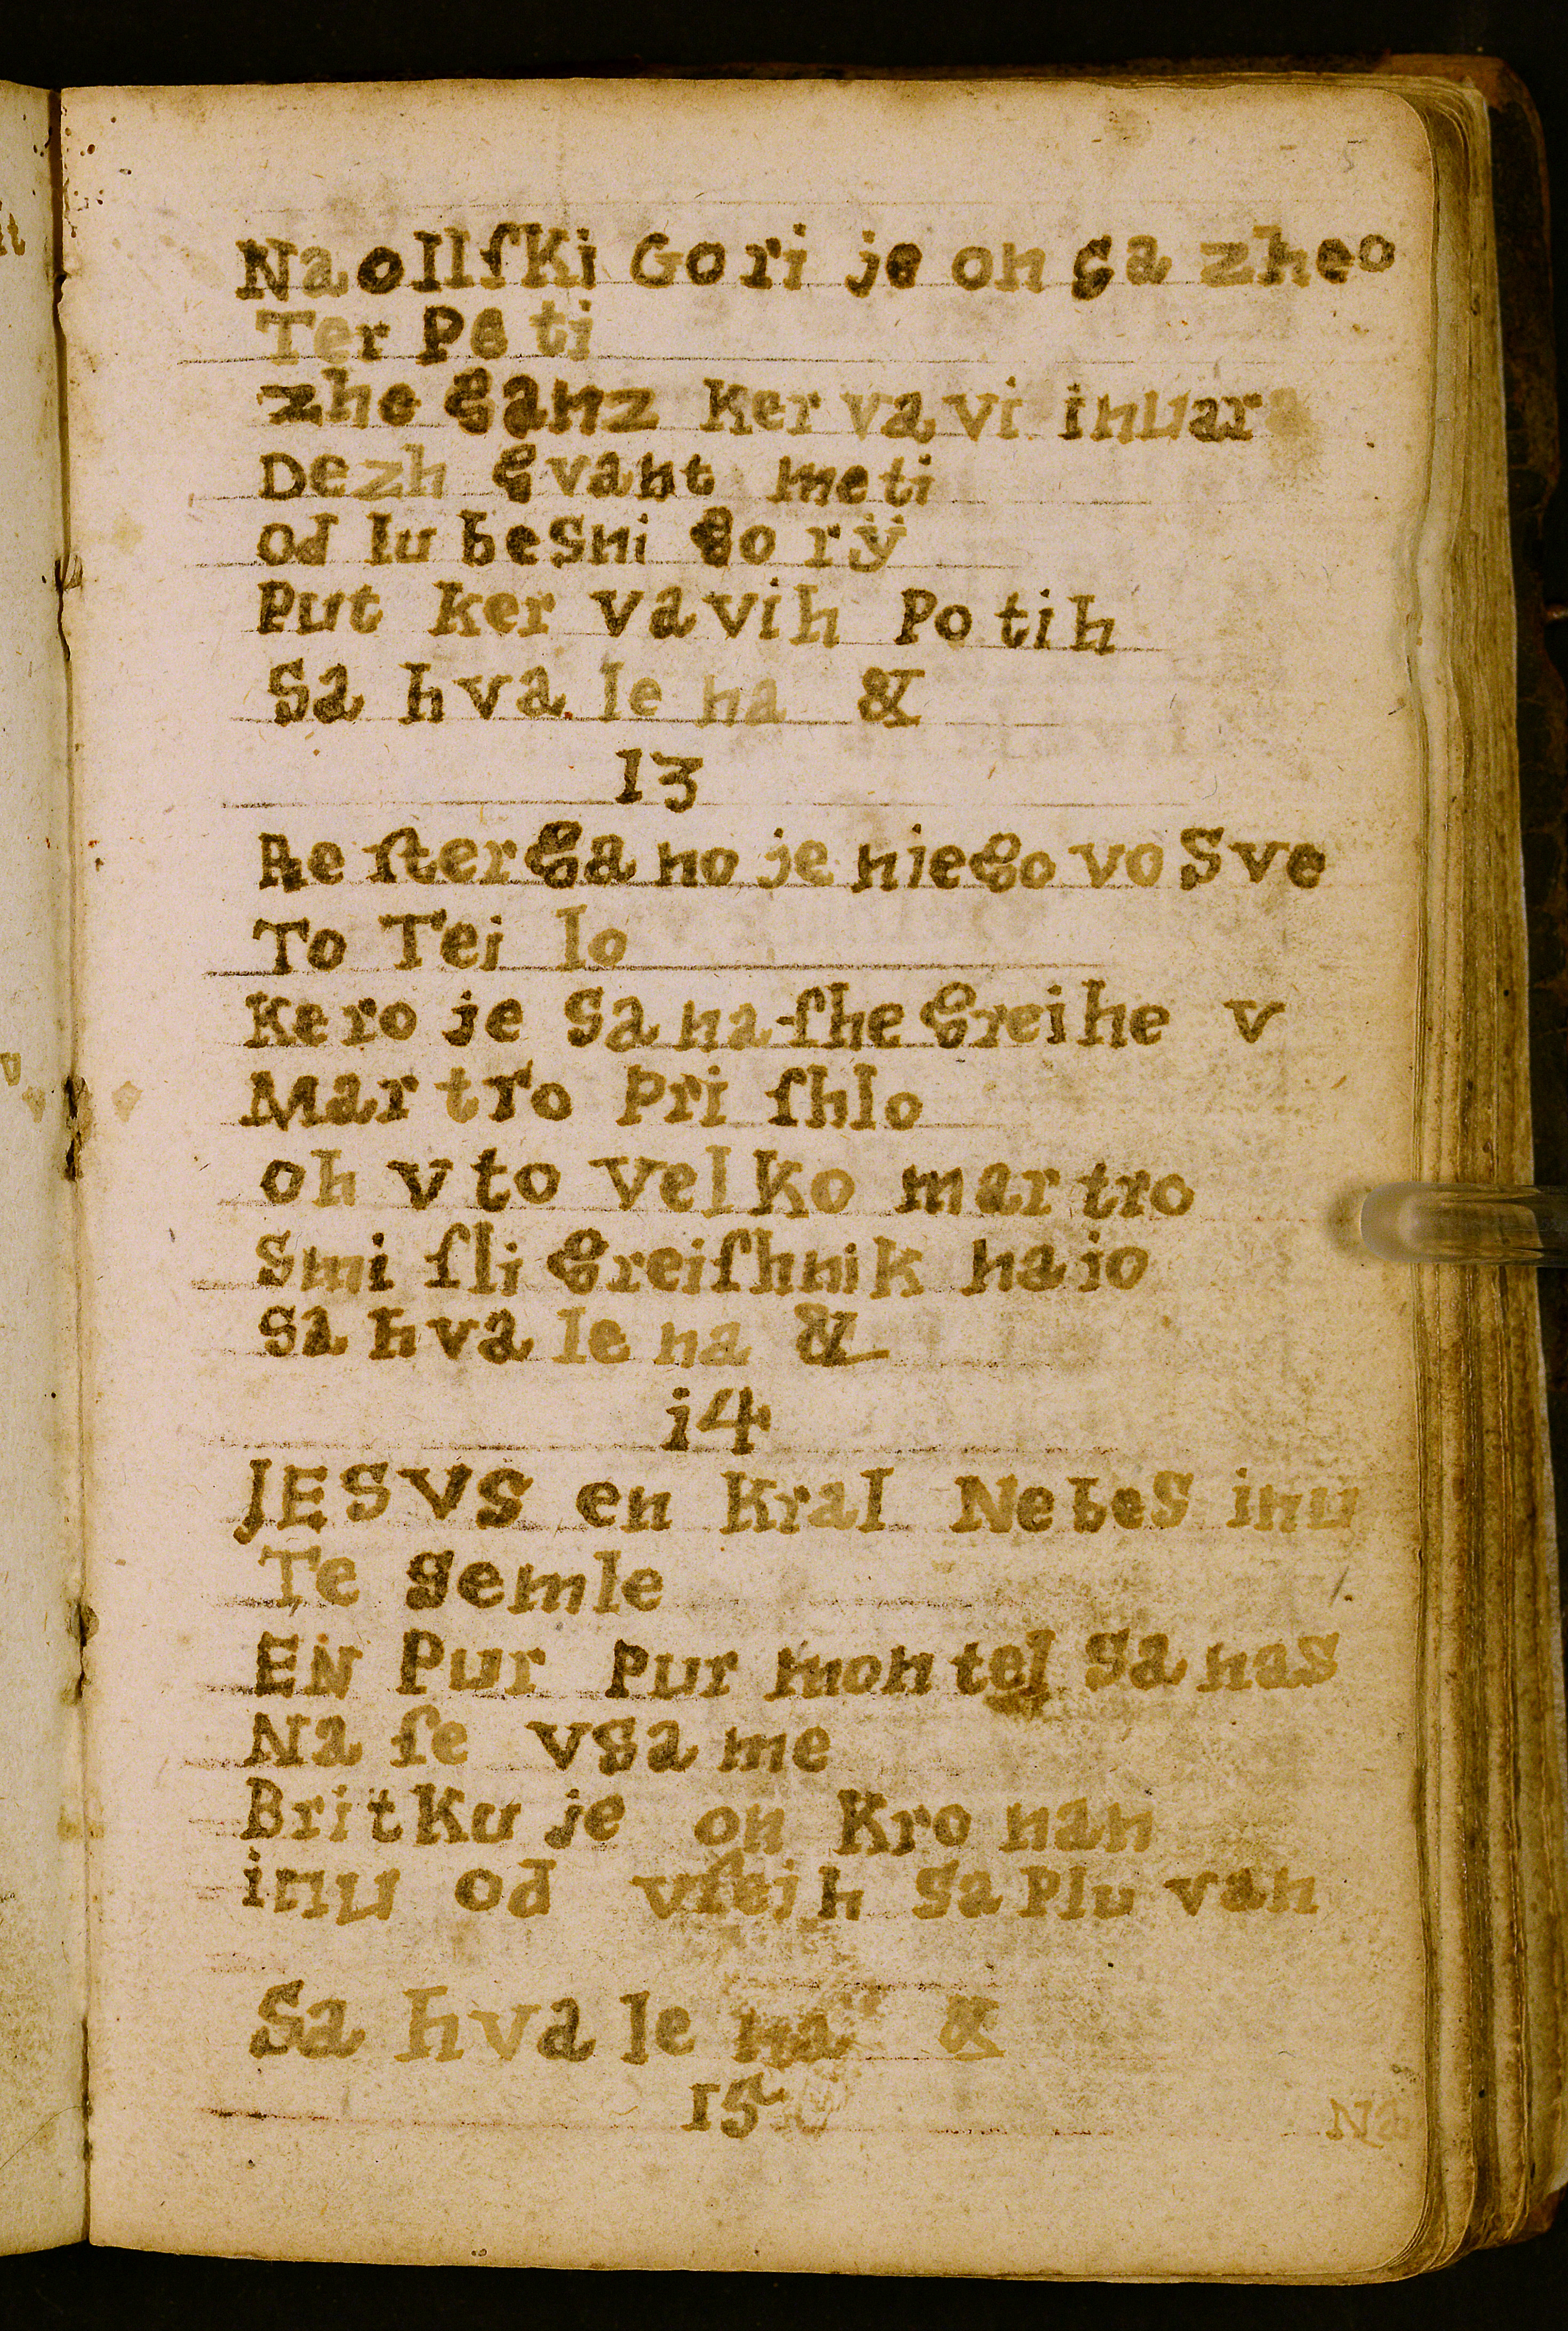 5
Na ollſKi Gori je on Sa zheo
Ter Pe ti
zhe ganz Ker va vi inuar
Dezh gvant meti
od lu beSni go rÿ
Put ker vavih Po tih
Sa hva le na &
13
Re ſterga no je niego vo Sve
To Tei lo
Kero je Sa na ſhe greihe v
Martro Pri ſhlo
oh v to velKo martro
Smi ſli greiſhnik naio
Sa hva le na &
i4
JESVS en Kral NebeS inu
Te Semle
EN Pur Pur montel Sa naS
Na ſe vSa me
BritKu je on Kro nan
inu od vſeih Sa Plu van
Sa hva le na &
15
Na